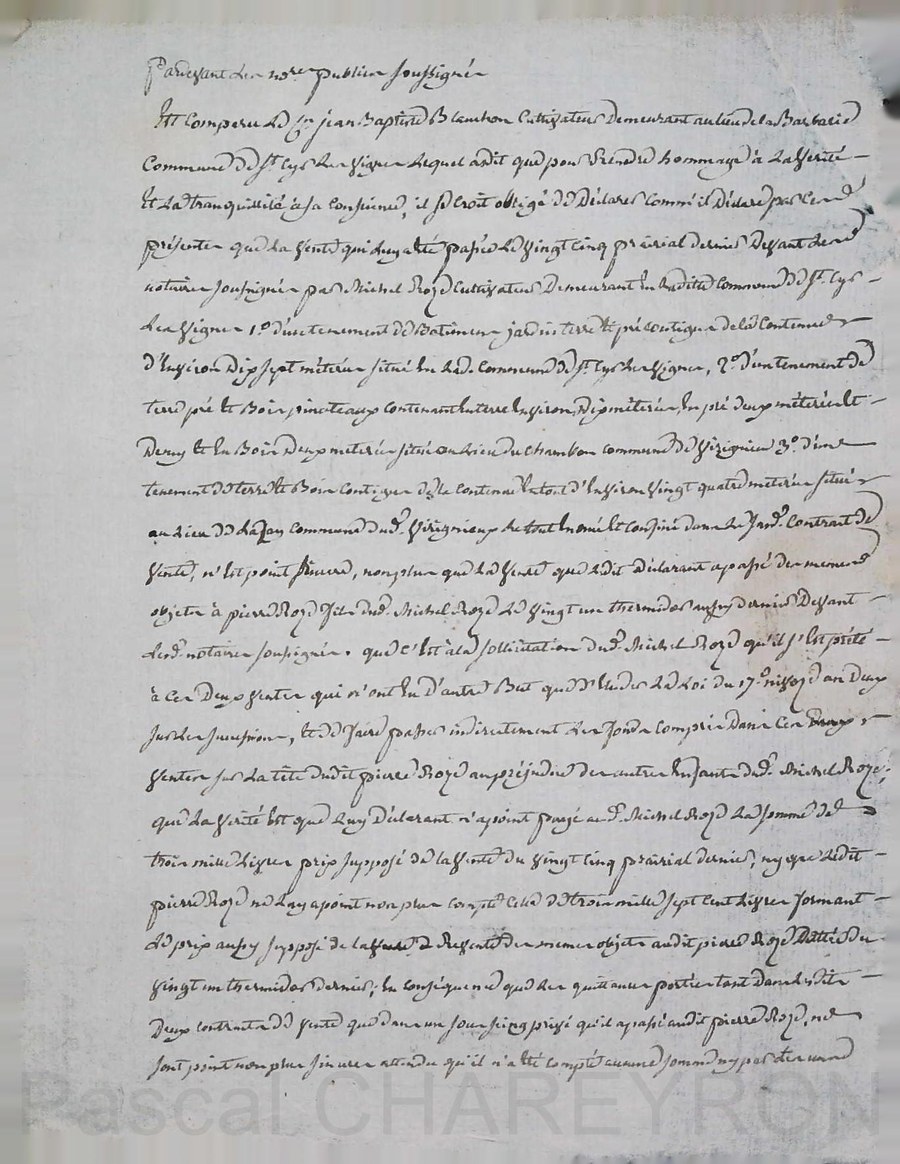 Pardevant les nores publics soussignés
Est comparu le Cn jean Baptiste Blanchon Cultivateur Demeurant au lieu de la Barbarie
Commune de St. Cyr les vignes lequel a dit que pour Rendre hommage à la Verité
Et la tranquillité à sa Consience, il se Croit obligé de Déclarer Comm'il Déclare par Ces
présentes que la Vente qui luy a été passée le Vingt Cinq prairial dernier Devant les
notaires soussignés par Michel Roze Cultivateur Demeurant En ladite Commune de St. Cyr
les vignes 1.° d'un tenement de Batiments jardin terre Et pré Contigus de la Contenue
d'Environ Dix sept méterées situé En lad. Commune de St. Cyr les vignes, 2.° d'un tenement de
terre pré Et Bois pineteaux contenant En terre Environ Dix méterées, En pré deux méterées Et
Demy Et En Bois Deux meterées situé au Lieu du Chambon commune de Virignieu 3.° d'une
tenement de terre Et Bois Contigus de la contenue En tout d'Environ Vingt quatre meterées situé
au Lieu de Commune dud. Virignieux le tout Enoncé Et Confiné dans le susd. Contrait de
Vente, n'Est point sincere, non plus que la Vente que ledit Déclarant a passé des memes
objets à pierre Roze fils dud. Michel Roze le Vingt un thermidor aussy dernier Devant
lesd. notaires soussignés. que c'Est à la sollicitation dud. Michel Roze qu'il s'Est prêté
à Ces Deux Ventes qui n'ont Eu d'autre But que d'Eluder la Loi du 17.e nivoze an Deux
sur les sucessions, Et de faire passer indirectement les fonds Compris Dans Ces Deux
Ventes sur la tête dudit pierre Roze au préjudice des autres Enfants dud. Michel Roze;
que la Verité Est que luy Déclarant n'a point payé aud. Michel Roze la somme de
trois mille Livres prix supposé de la Vente du Vingt Cinq prairial dernier, ny que ledit
pierre Roze ne luy a point non plus compté Celle de trois mille sept Cent Livres formant
le prix aussy supposé de la Revente des memes objets audit pierre Roze Dattée du
Vingt un thermidor dernier; En conséquence que les quittances portées tant Dans lesdits
Deux contrats de Vente que dans un sous seing privé qu'il a passé audit pierre Roze, ne
sont point non plus sinceres attendu qu'il n'a été compté aucune somme ny par
Pascal CHAREYRON